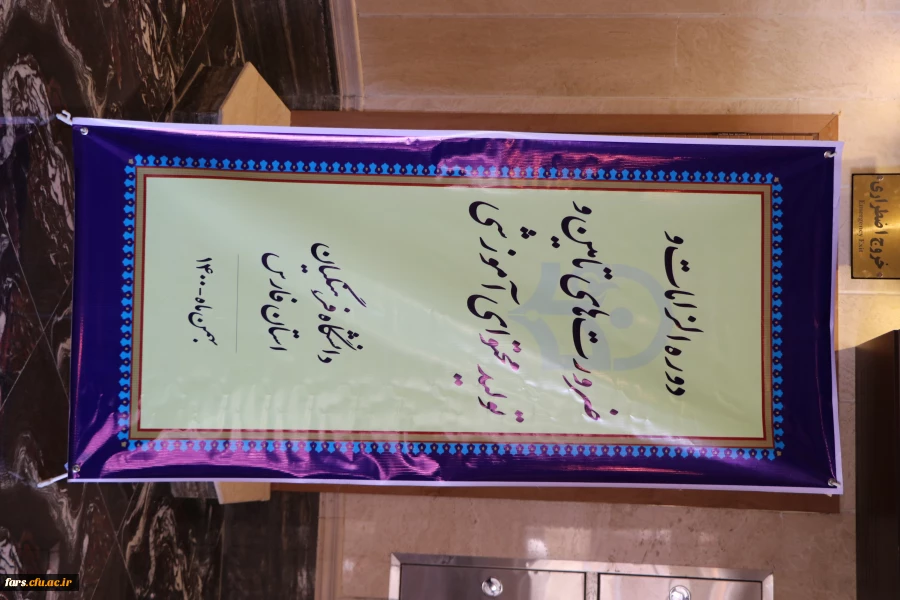 دوره الزامات و
ضرورت‌های تامین و
تولید محتوای آموزشی
دانشگاه فرهنگیان
استان فارس
بهمن ماه ۱۴۰۰
خروج اضطراری
Emergency Exit
fars.cfu.ac.ir